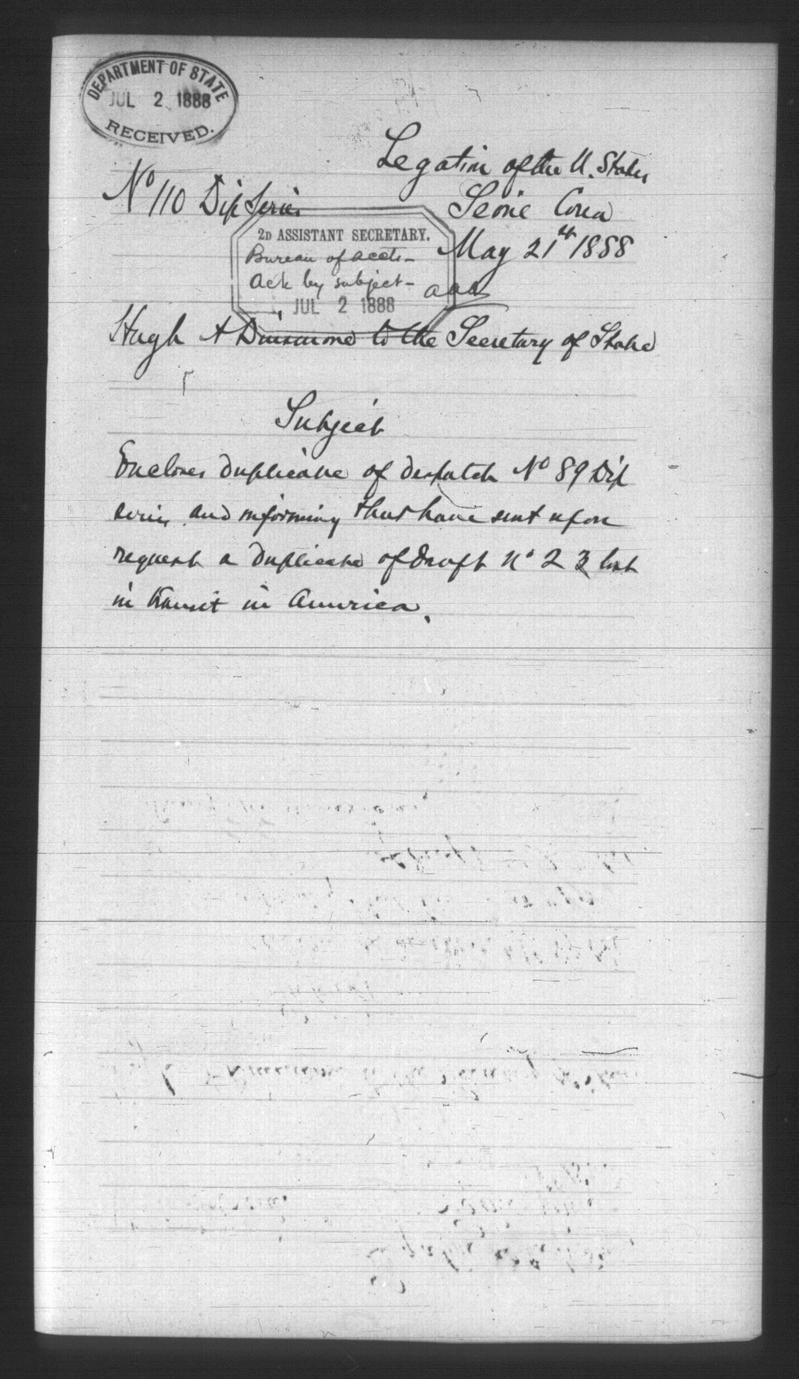 DEPARTMENT OF STATE
JUL 2 1888
RECEIVED.
Legation of the U. States
No 110 Dip Series
Seoul Corea
May 21st 1888
2D ASSISTANT SECRETARY.
Bureau of accts-
Ack by subject-
JUL 2 1888
aaa
Hugh A Dinsmore to the Secretary of State
Subject
Encloses duplicate of despatch No 89 Dip
series and informing that have sent upon
request a duplicate of draft No 23 lost
in transit in America.